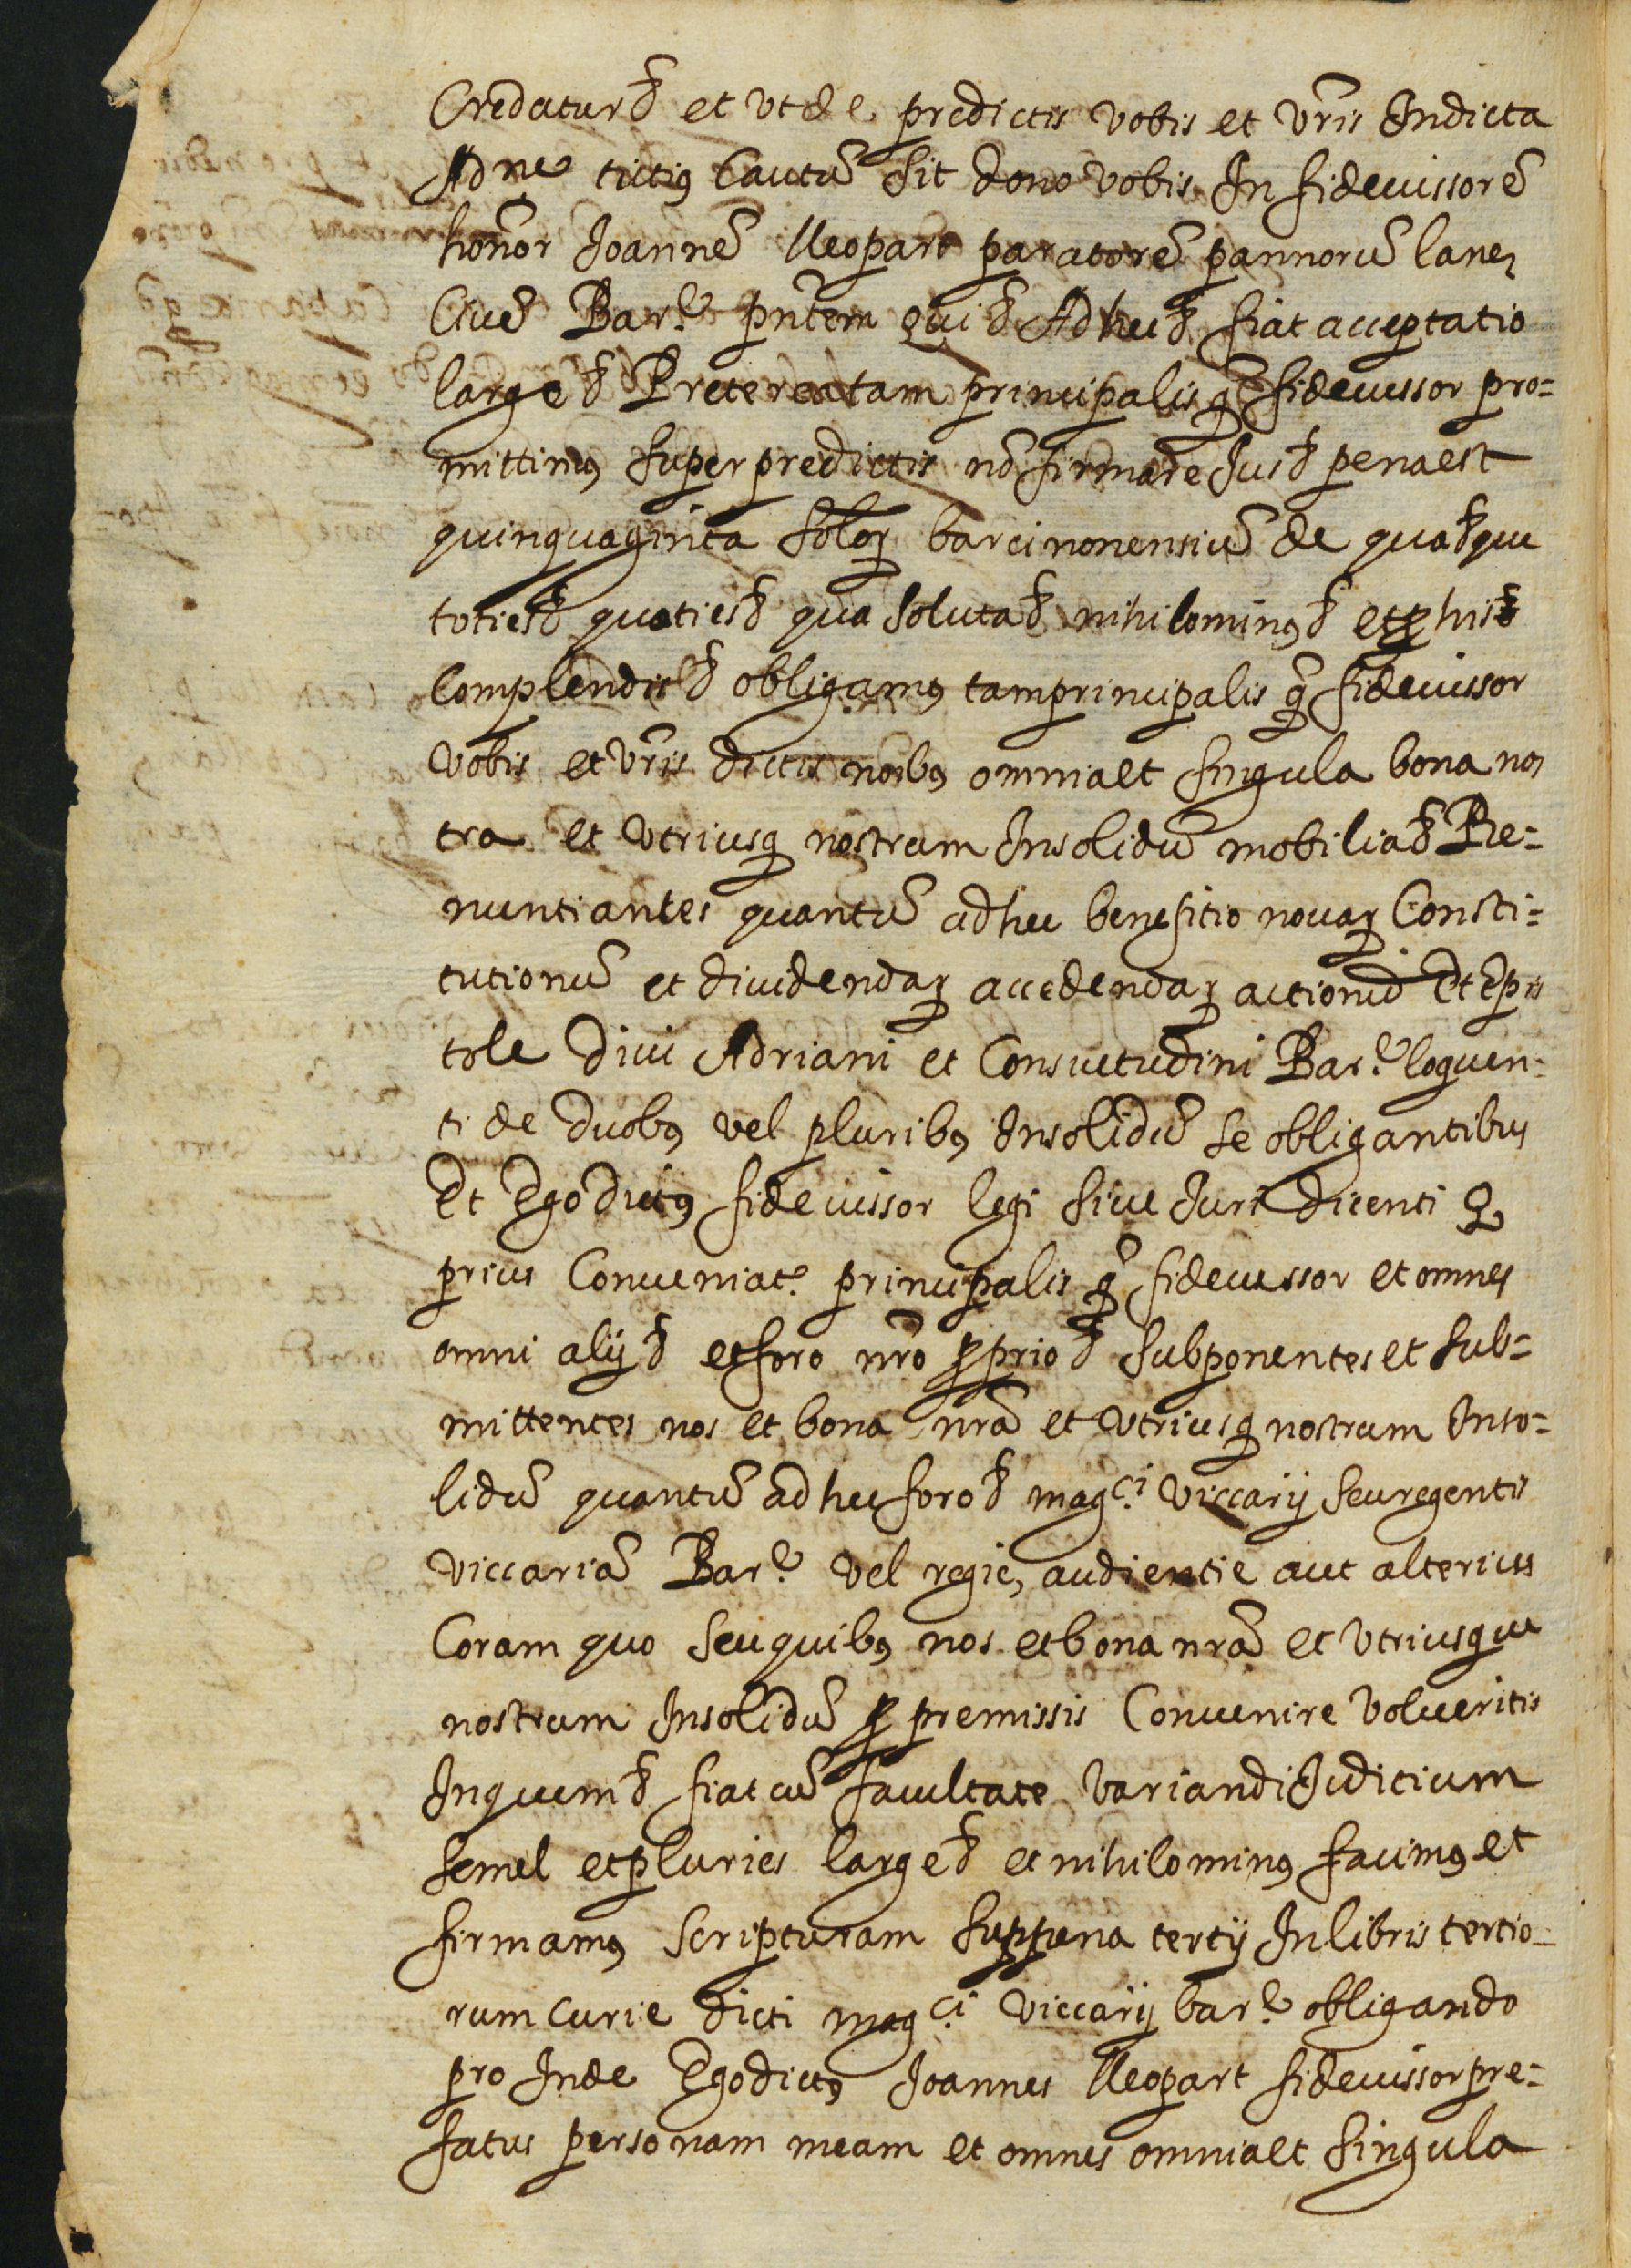 Credaturẽ et vt de predictis vobis et vr̃is Indicta
Adne tutiꝯ Cautũ sit dono vobis In fideiussorẽ
honor̃ Joannẽ lleopart paratorẽ pannorũ lane,
Ciuẽ Bar.e pñtem qui ẽ Ad hec ẽ fiat acceptatio
large ẽ Preterea tam principalis q̃ fideiussor pro=
mittimꝯ super predictis nõ firmare Jus ẽ pena est
quinquaginta soloꝝ barcinonensiũ de qua ẽ que
toties ẽ quoties ẽ qua soluta ẽ nihilominꝯ ẽ et ꝓ his ẽ
Complendis ẽ obligamꝯ tam principalis q̃ fideiussor
vobis et vr̃is dictis nõibꝯ omnia et singula bona nos
tra et vtriusqꝫ nostrum Insolidũ mobilia ẽ Re=
nuntiantes quantũ ad hec benefitio nouaꝝ Consti=
tutionũ et diuidendaꝝ accedendaꝝ actionũ Et Epis
tole Diui Adriani et Consuetudini Bar.e loquen=
ti de Duobꝯ vel pluribꝯ Insolidũ se obligantibus
Et Ego dictꝯ fideiussor legi siue Juri dicenti q
prius Conueniat.r principalis q̃ fideiussor et omnes
omni alij ẽ et foro nr̃o ꝓprio ẽ subponentes et sub=
mittentes nos et bona nr̃a et vtriusqꝫ nostrum Inso=
lidũ quantũ ad hec foro ẽ mag.ci viccarij seu regentis
viccariã Bar.e vel regie, audientie aut alterius
Coram quo seu quibꝯ nos et bona nr̃a et vtriusque
nostrum Insolidũ ꝓ premissis Conuenire volueritis
In quem ẽ fiat cũ facultate variandi Juditium
semel et pluries large ẽ et nihilominꝯ facimꝯ et
firmamꝯ scripturam suppena tertij In libris tertio=
rum curie dicti mag.ci viccarij bar.e obligando
pro Inde Ego dictꝯ Joannes lleopart fideiussor pre=
fatus personam meam et omnes omnia et singula